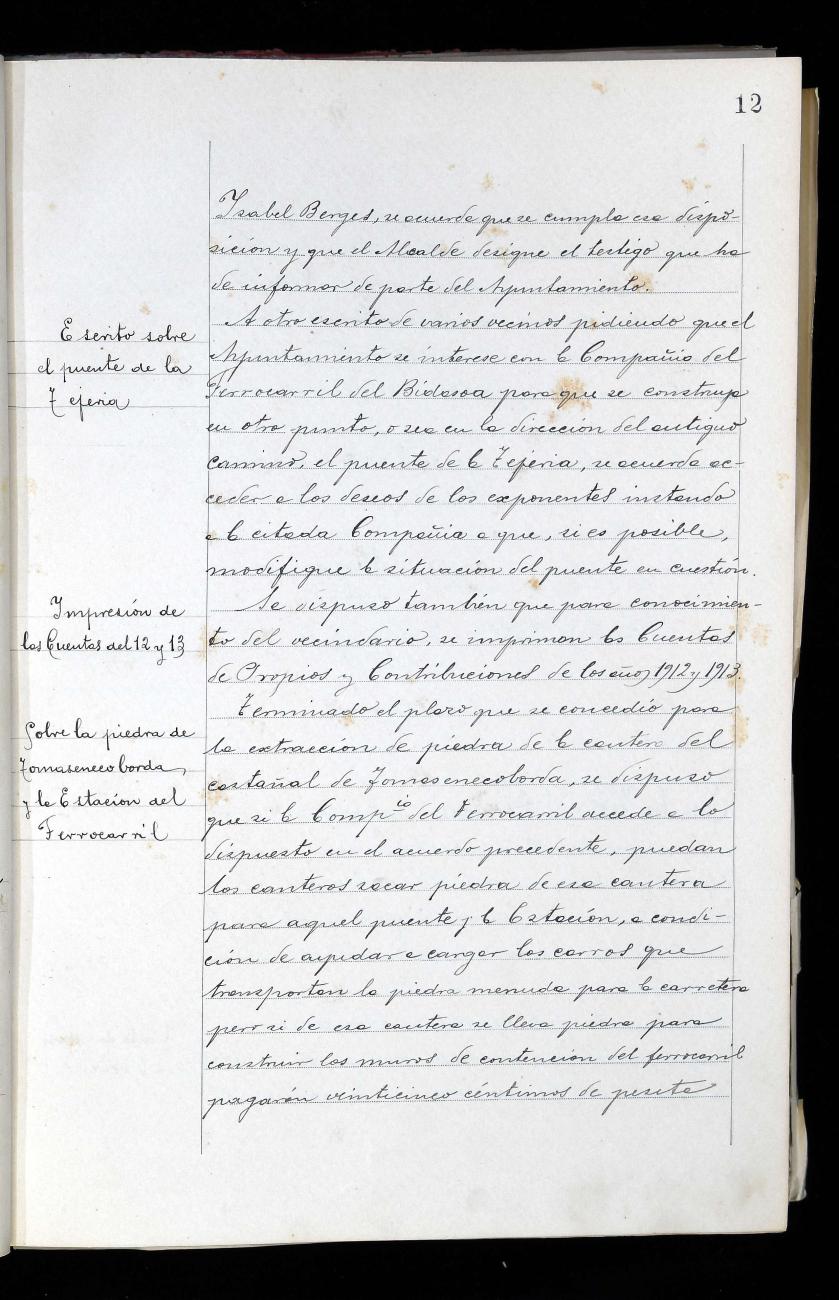 12
Isabel Berges, se acuerda que se cumpla esa dispo-
sición y que el Alcalde designe el testigo que ha
de informar de parte del Ayuntamiento.
Escrito sobre
el puente de la
Tejeria
A otro escrito de varios vecinos pidiendo que el
Ayuntamiento se interese con la Compañia del
Ferrocarril del Bidasoa para que se construya
en otro punto, o sea en la dirección del antiguo
camino, el puente de la Tejeria, se acuerda ac-
ceder a los deseos de los exponentes instando
a la citada Compañia a que, si es posible,
modifique la situación del puente en cuestión.
Impresión de
las Cuentas del 12 y 13
Se dispuso también que para conocimien-
to del vecindario, se impriman las Cuentas
de Propios y Contribuciones de los años 1912 y 1913.
Sobre la piedra de
Tomasenecoborda,
y la Estación del
Ferrocarril
Terminado el plazo que se concedió para
la extracción de piedra de la cantera del
castañal de Tomasenecoborda, se dispuso
que si la Compia del Ferrocarril accede a lo
dispuesto en el acuerdo precedente, puedan
los canteros sacar piedra de esa cantera
para aquel puente y la Estación, a condi-
ción de ayudar a cargar los carros que
transportan la piedra menuda para la carretera
pero si de esa cantera se lleva piedra para
construir los muros de contención del ferrocarril
pagarán veinticinco céntimos de peseta